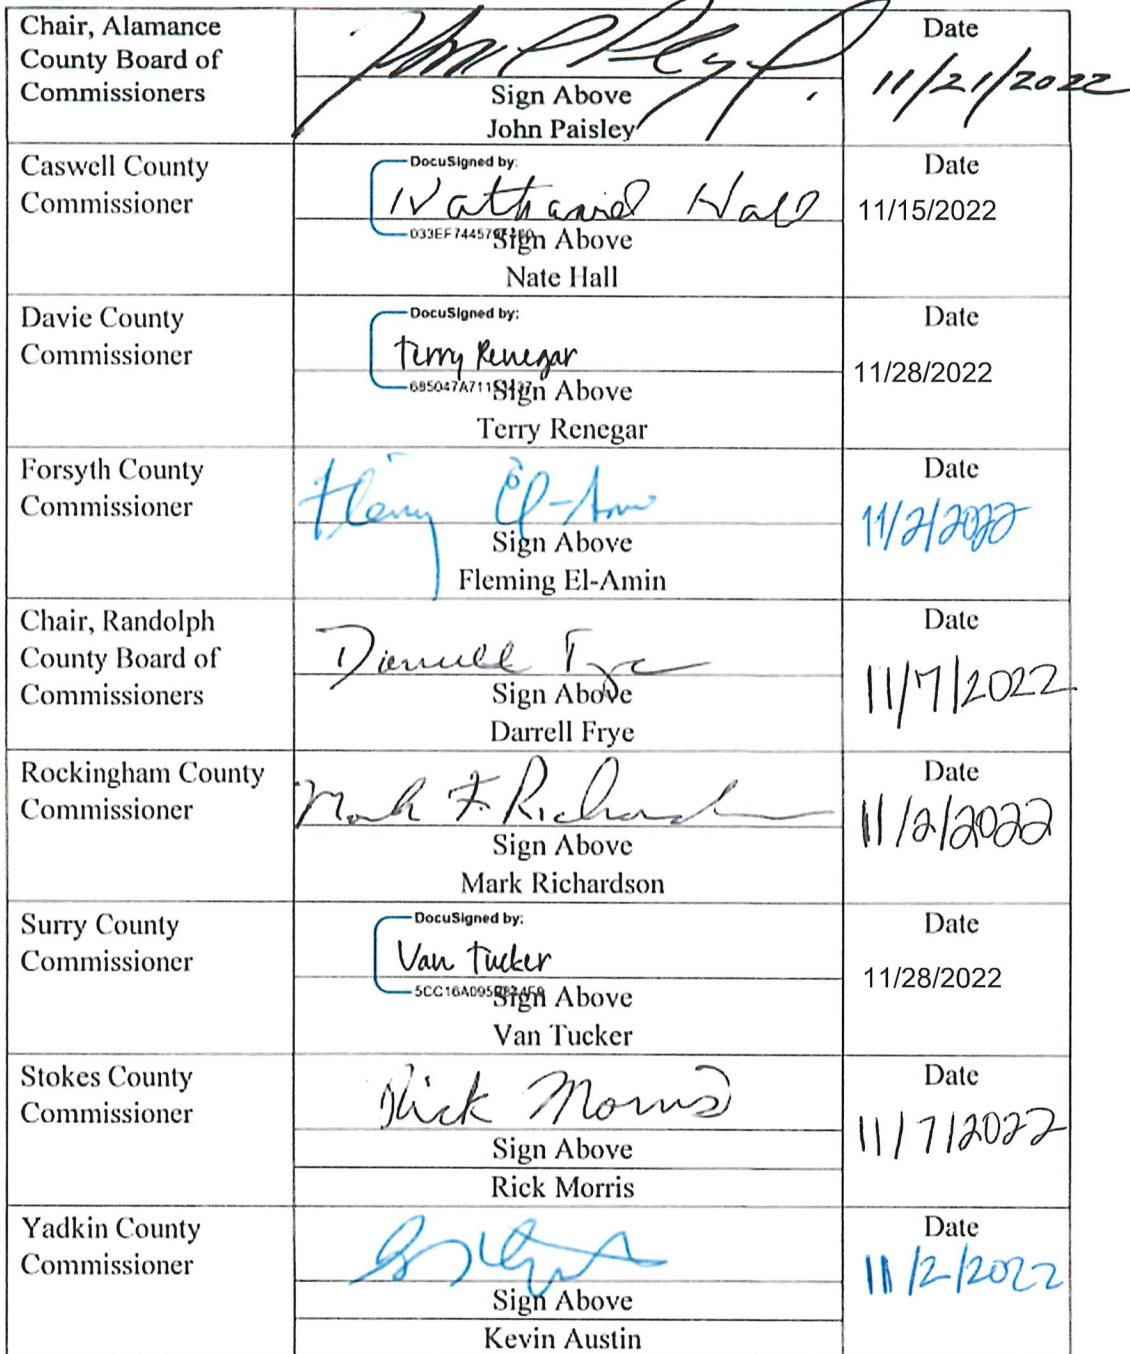 Chair, Alamance
County Board of
Commissioners
Sign Above
John Paisley
Date
11/21/2022
Caswell County
Commissioner
DocuSigned by:
Nathaniel Hall
Sign Above
Nate Hall
Date
11/15/2022
Davie County
Commissioner
DocuSigned by:
Terry Renegar
Sign Above
Terry Renegar
Date
11/28/2022
Forsyth County
Commissioner
Fleming El-Amin
Sign Above
Fleming El-Amin
Date
11/2/2022
Chair, Randolph
County Board of
Commissioners
Darrell Frye
Sign Above
Darrell Frye
Date
11/7/2022
Rockingham County
Commissioner
Mark F. Richardson
Sign Above
Mark Richardson
Date
11/2/2022
Surry County
Commissioner
DocuSigned by:
Van Tucker
Sign Above
Van Tucker
Date
11/28/2022
Stokes County
Commissioner
Rick Morris
Sign Above
Rick Morris
Date
11/7/2022
Yadkin County
Commissioner
Sign Above
Kevin Austin
Date
11/2/2022